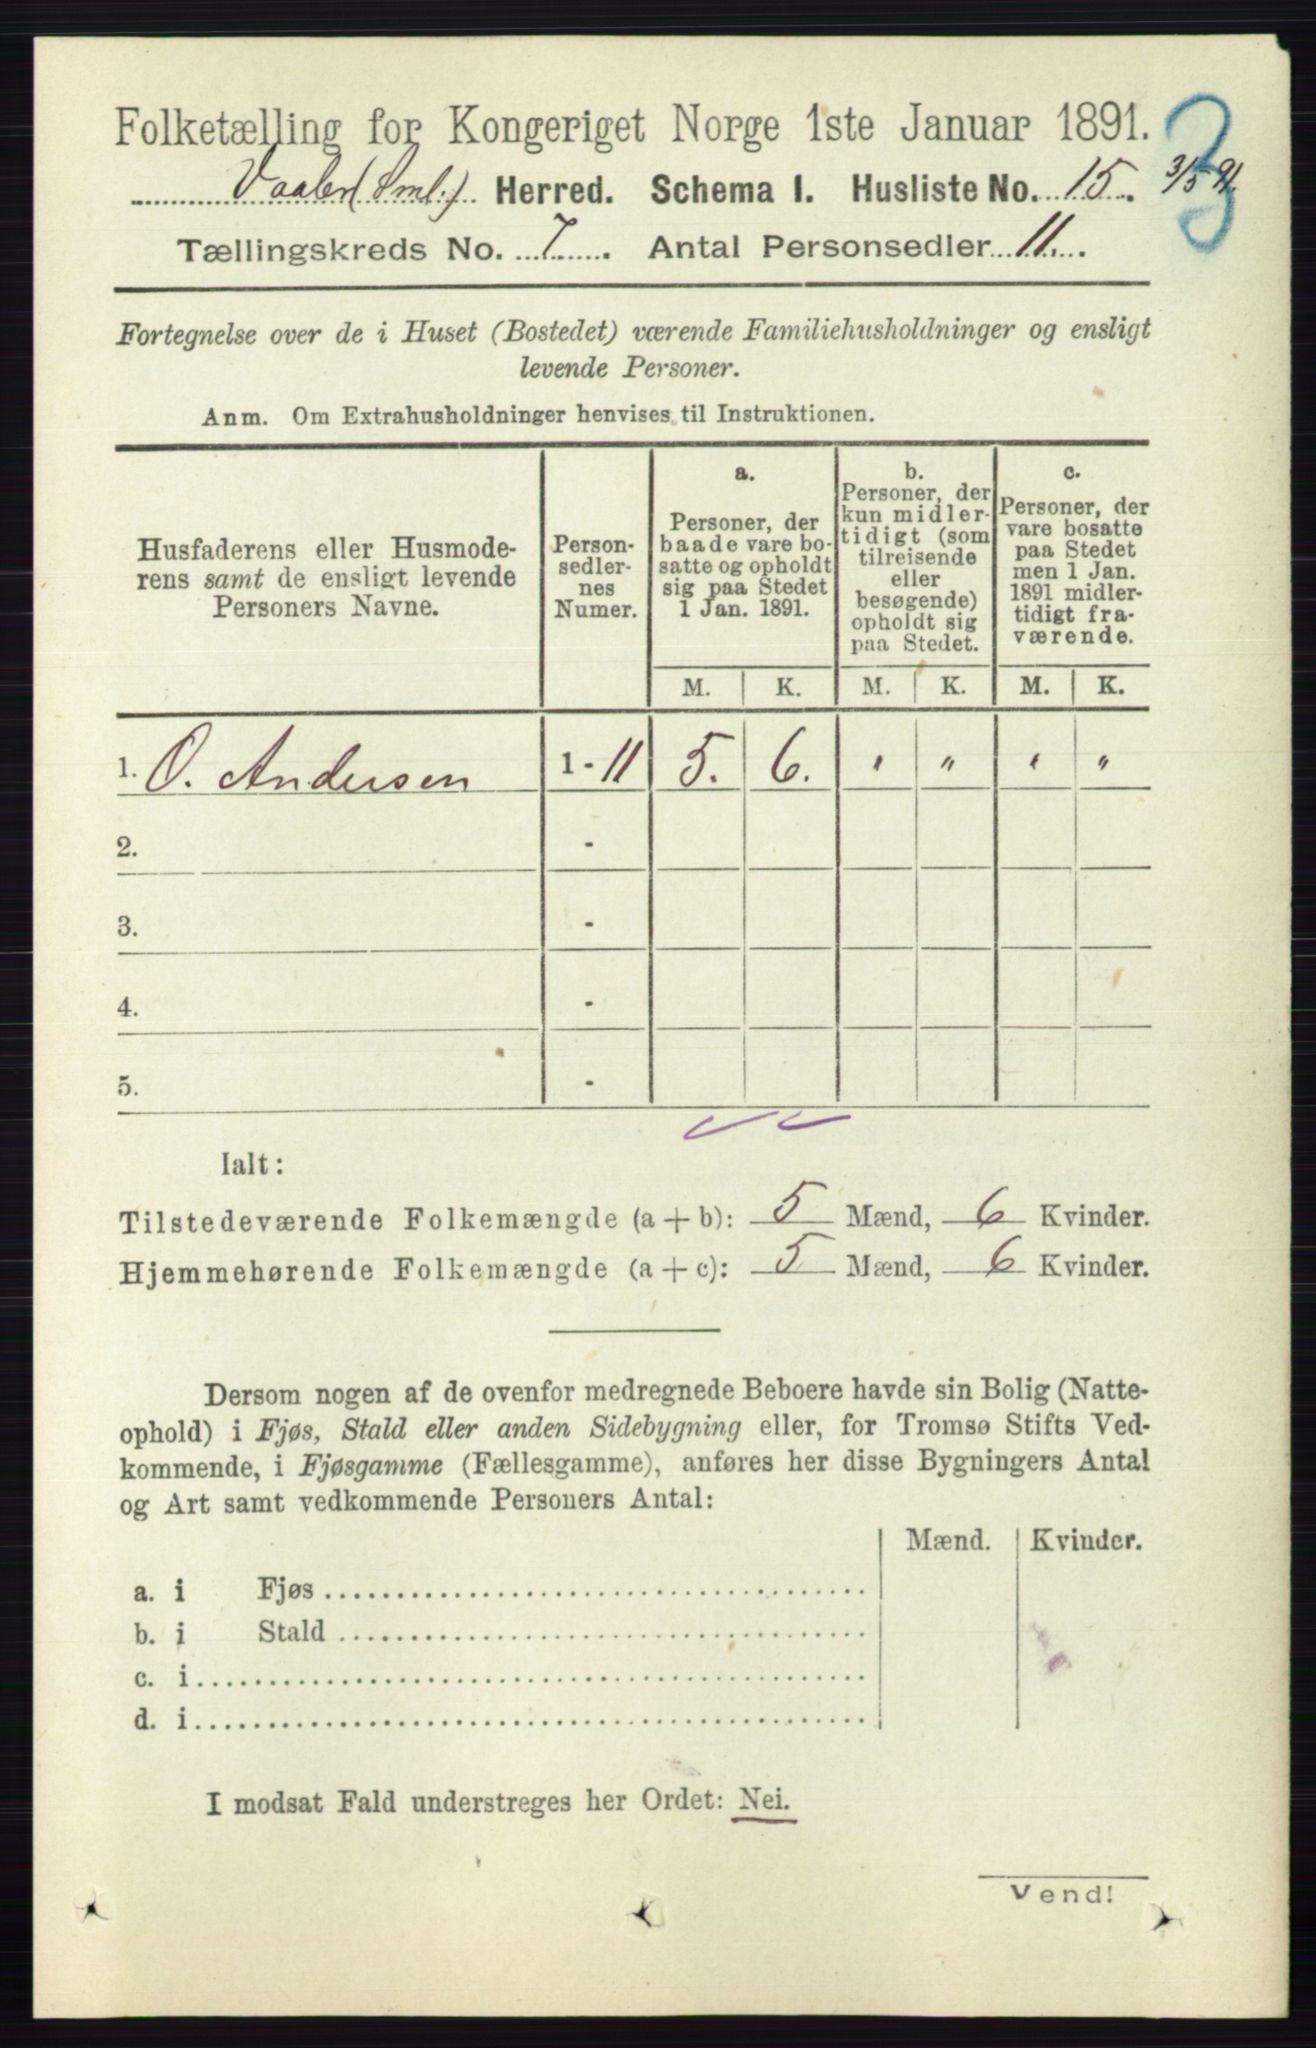 Folketælling for Kongeriget Norge 1ste Januar 1891.
Vaaler (Sml.) Herred. Schema I. Husliste No. 15. 3/5 91.
3
Tællingskreds No. 7. Antal Personsedler 11.
Fortegnelse over de i Huset (Bostedet) værende Familiehusholdninger og ensligt
levende Personer.
Anm. Om Extrahusholdninger henvises til Instruktionen.
Husfaderens eller Husmode-
rens samt de ensligt levende
Personers Navne.
Person-
sedler-
nes
Numer.
a.
Personer, der
baade vare bo-
satte og opholdt
sig paa Stedet
1 Jan. 1891.
b.
Personer, der
kun midler-
tidigt (som
tilreisende
eller
besøgende)
opholdt sig
paa Stedet.
c.
Personer, der
vare bosatte
paa Stedet
men 1 Jan.
1891 midler-
tidigt fra-
værende.
M. K. M. K. M. K.
1. O. Andersen 1 - 11 5. 6. " " " "
2. -
3. -
4. -
5. -
Ialt:
Tilstedeværende Folkemængde (a + b): 5 Mænd, 6 Kvinder.
Hjemmehørende Folkemængde (a + c): 5 Mænd, 6 Kvinder.
Dersom nogen af de ovenfor medregnede Beboere havde sin Bolig (Natte-
ophold) i Fjøs, Stald eller anden Sidebygning eller, for Tromsø Stifts Ved-
kommende, i Fjøsgamme (Fællesgamme), anføres her disse Bygningers Antal
og Art samt vedkommende Personers Antal:
Mænd. Kvinder.
a. i Fjøs
b. i Stald
c. i
d. i
I modsat Fald understreges her Ordet: Nei.
Vend!